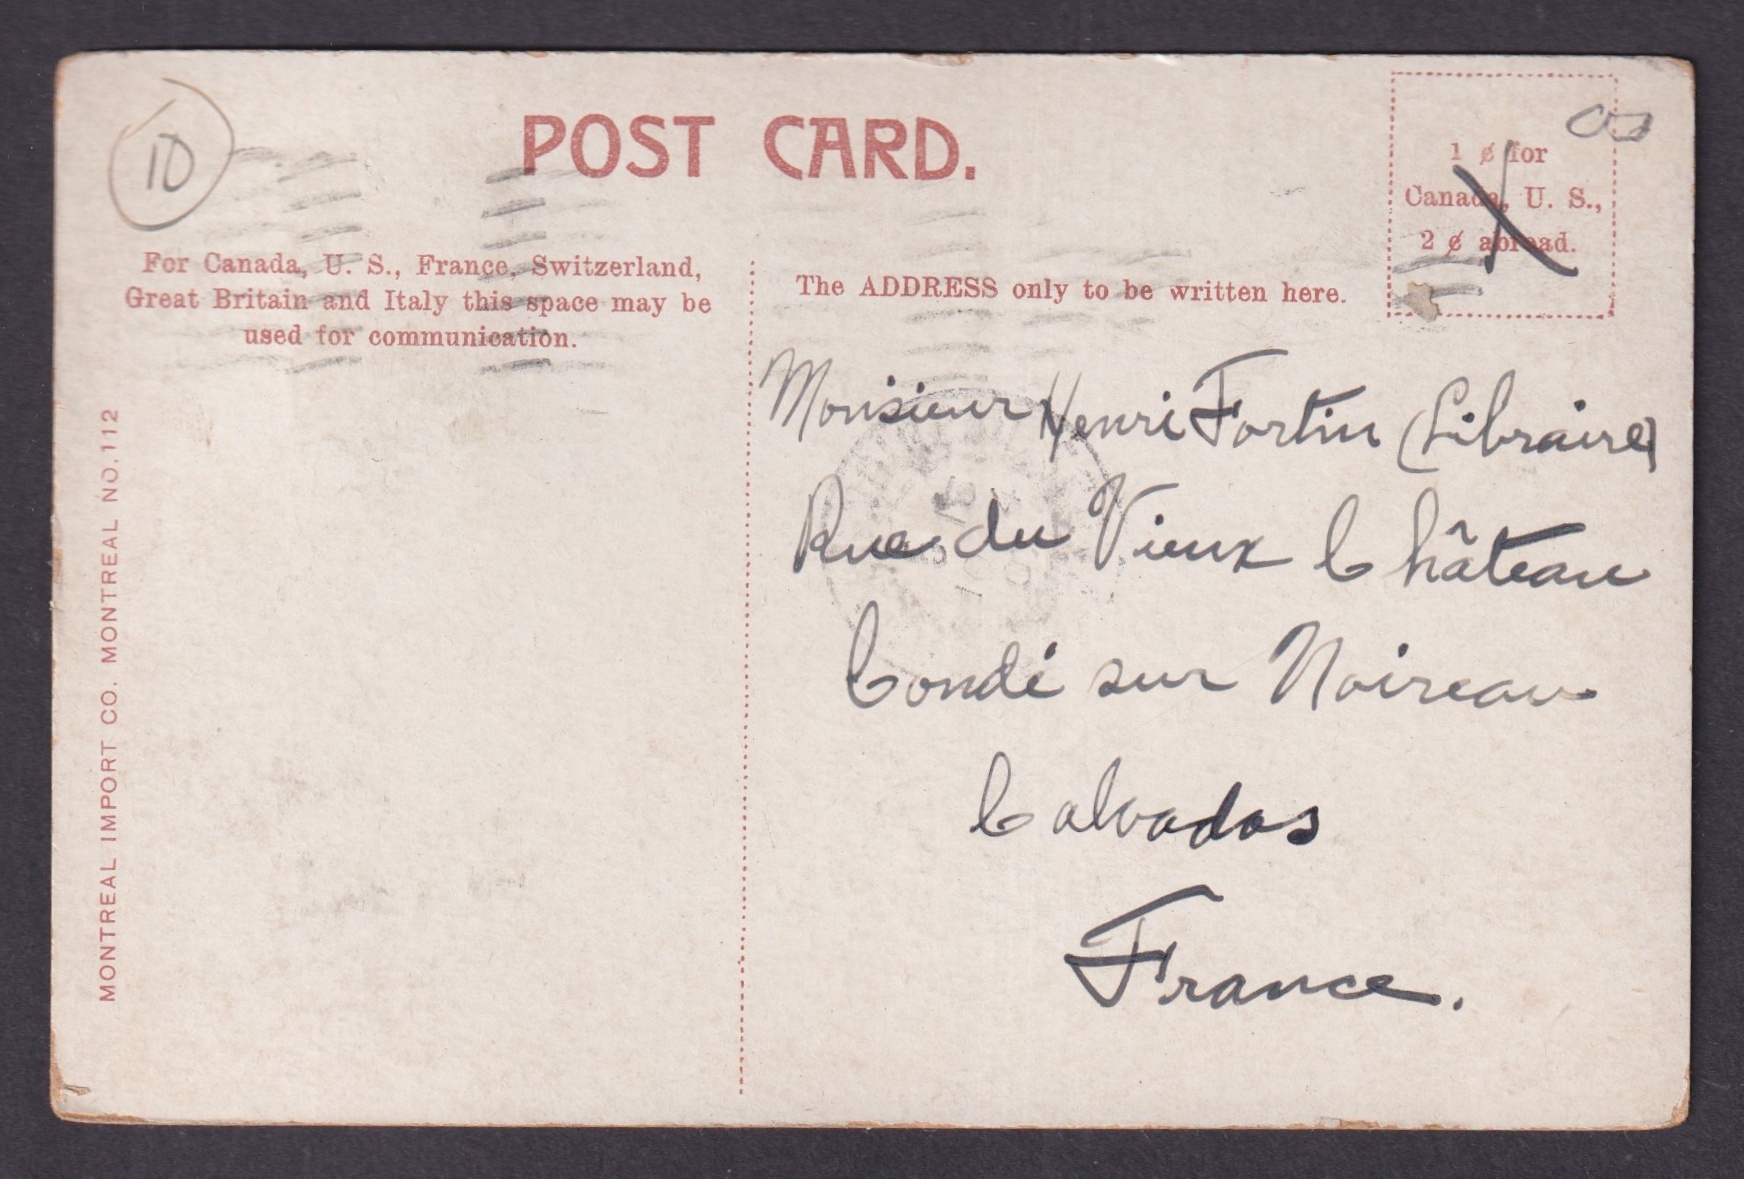 10
POST CARD.
1 ¢ for
Canada, U. S.,
2 ¢ abroad.
For Canada, U. S., France, Switzerland,
Great Britain and Italy this space may be
used for communication.
The ADDRESS only to be written here.
Monsieur Henri Fortin (Libraire)
Rue du Vieux Château
Condé sur Noireau
Calvados
France.
MONTREAL IMPORT CO. MONTREAL NO. 112